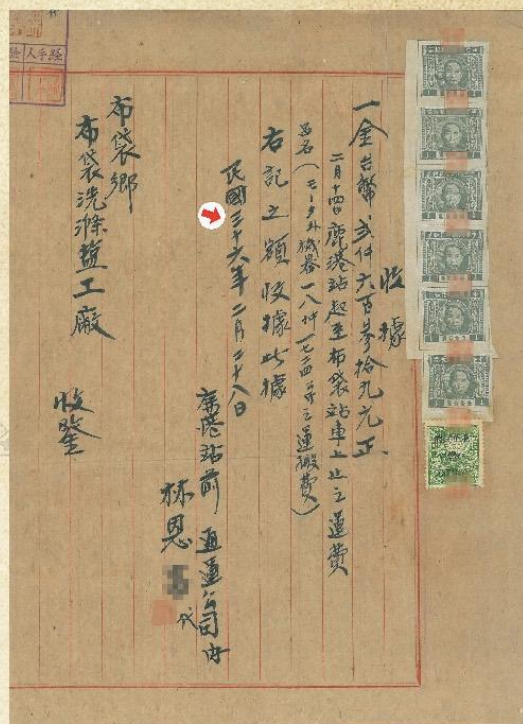 收據
一金台幣弍仟六百參拾九元正
二月十四日鹿港站起至布袋站車上止之運費
品名（モータ外機器一八件一七二四斤之運搬費）
右記之額收據此據
民國三十六年二月二十八日
鹿港站前 通運公司内
林恩 代
布袋鄉
布袋洗滌鹽工廠
收鑒
經手人